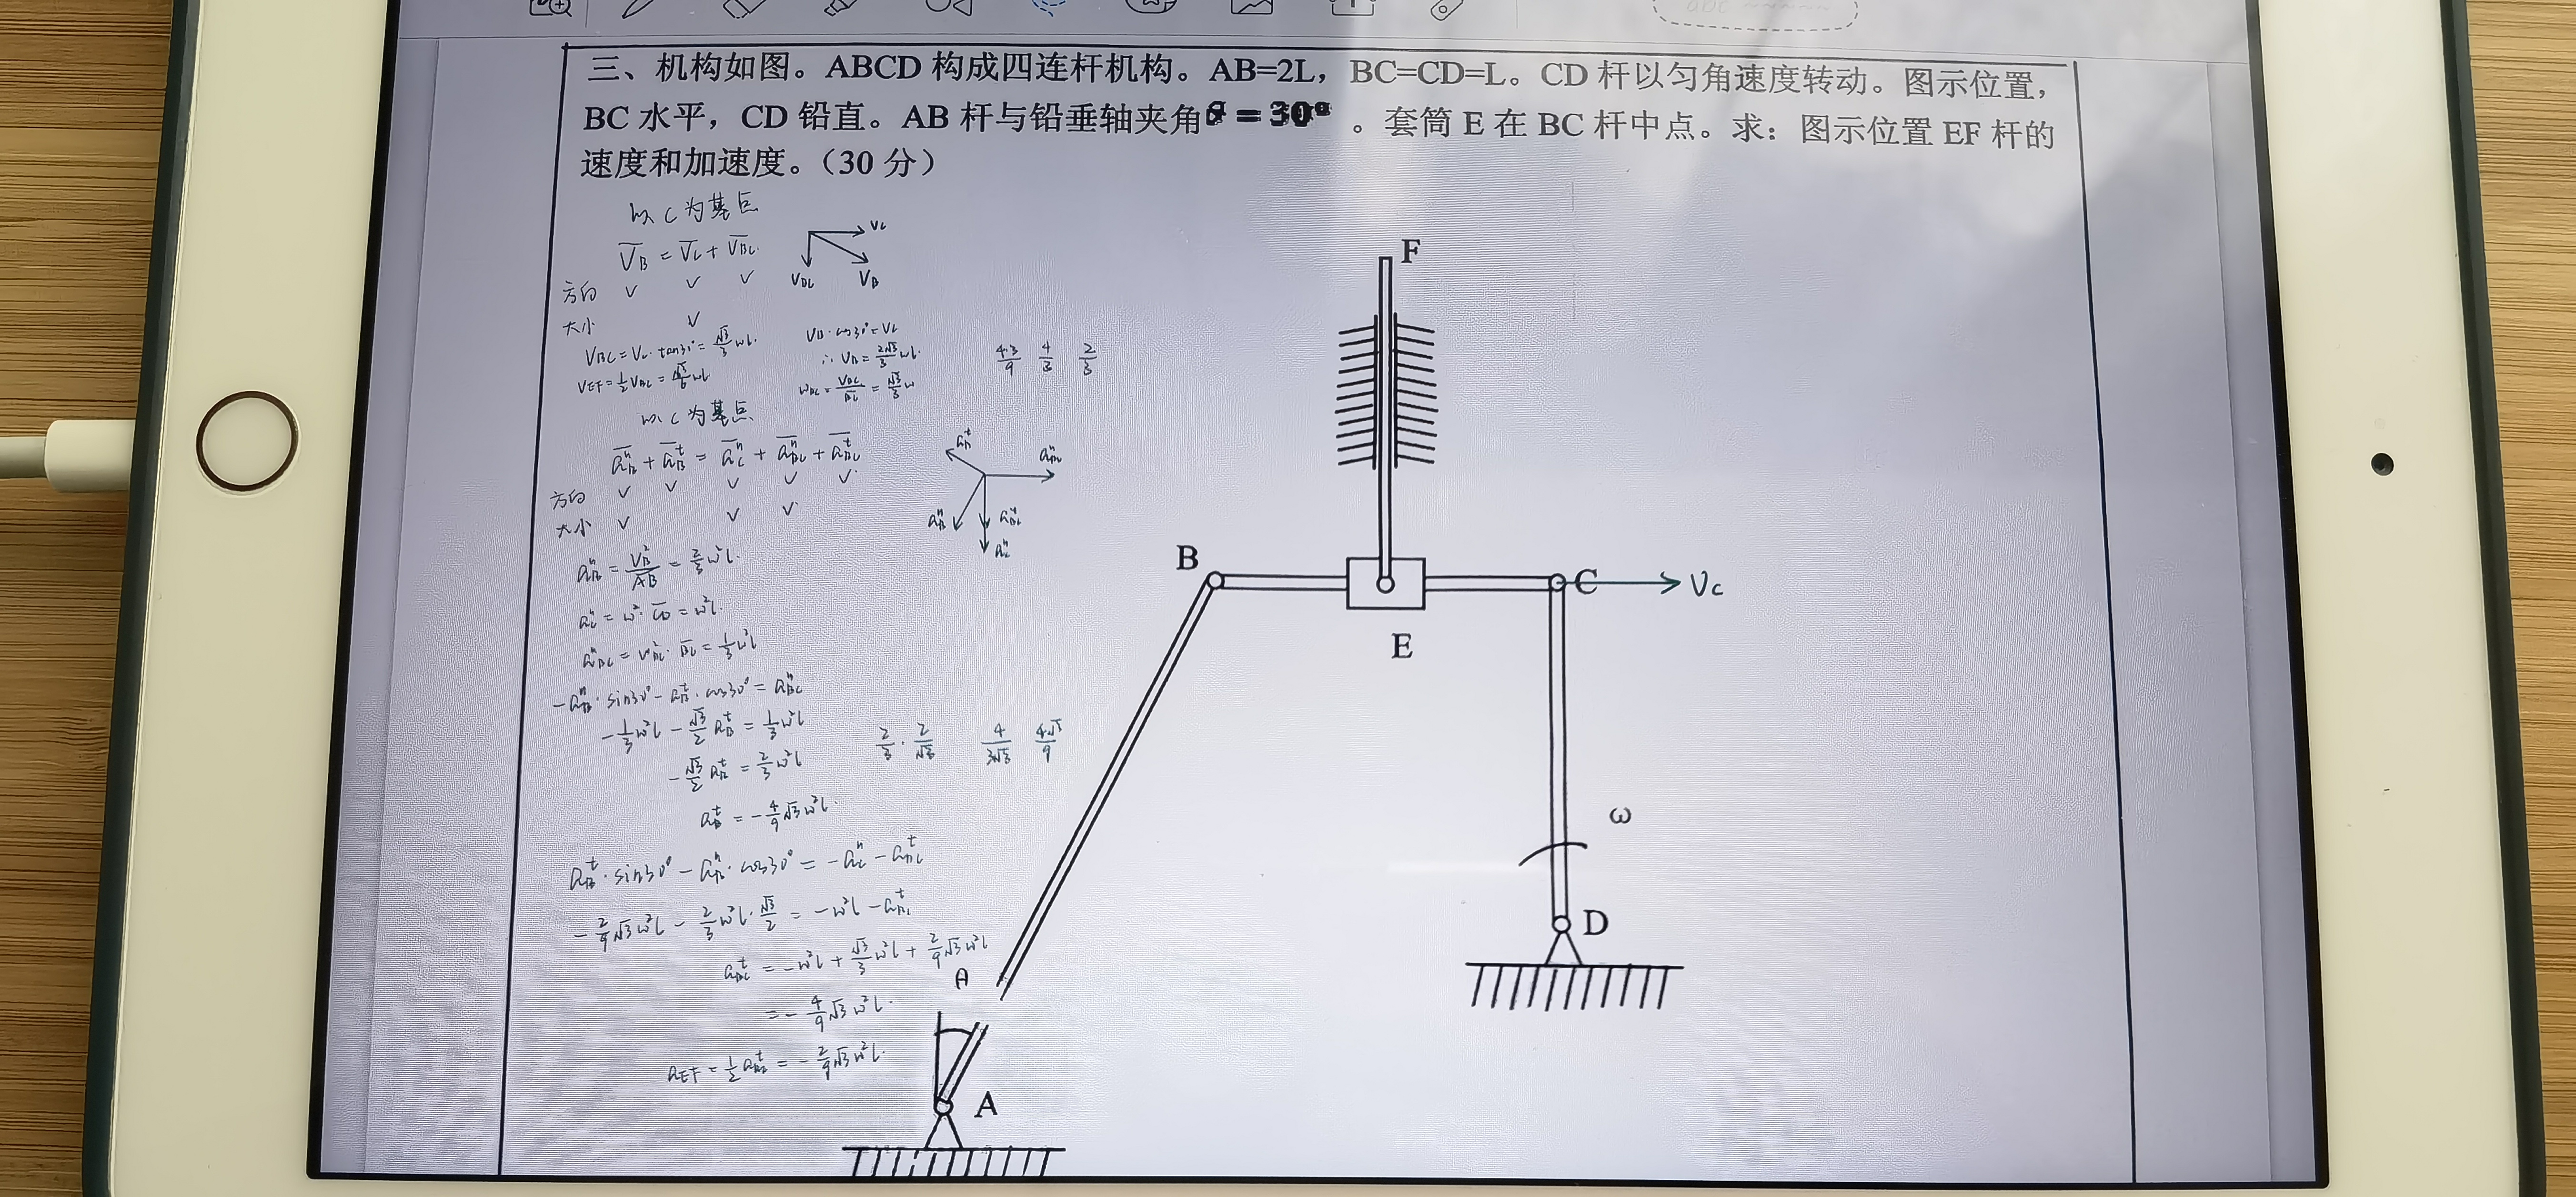 三、机构如图。ABCD 构成四连杆机构。AB=2L，BC=CD=L。CD 杆以匀角速度转动。图示位置，
BC 水平，CD 铅直。AB 杆与铅垂轴夹角θ = 30°。套筒 E 在 BC 杆中点。求：图示位置 EF 杆的
速度和加速度。（30 分）
以 C 为基点
V_B = V_C + V_BC
方向 ✓ ✓ ✓
大小 ✓
V_C
V_BC V_B
V_BC = V_C · tan30° = √3/3 ωL
V_B · cos30° = V_C
∴ V_B = 2√3/3 ωL
V_EF = 1/2 V_BC = √3/6 ωL
ω_BC = V_BC/BC = √3/3 ω
4√3/9 4/3 2/3
以 C 为基点
a_B^n + a_B^t = a_C^n + a_BC^n + a_BC^t
方向 ✓ ✓ ✓ ✓ ✓
大小 ✓ ✓ ✓
a_B^t a_BC^n
a_B^n a_BC^t
a_C^n
a_B^n = V_B²/AB = 2/3 ω²L
a_C^n = ω² · CD = ω²L
a_BC^n = ω_BC² · BC = 1/3 ω²L
-a_B^n · sin30° - a_B^t · cos30° = a_BC^n
-1/3 ω²L - √3/2 a_B^t = 1/3 ω²L
-√3/2 a_B^t = 2/3 ω²L
2/3 · 2/√3 4/3√3 4√3/9
a_B^t = -4/9 √3 ω²L
a_B^t · sin30° - a_B^n · cos30° = -a_C^n - a_BC^t
-2/9 √3 ω²L - 2/3 ω²L · √3/2 = -ω²L - a_BC^t
a_BC^t = -ω²L + √3/3 ω²L + 2/9 √3 ω²L
= -4/9 √3 ω²L
a_EF = 1/2 a_BC^t = -2/9 √3 ω²L
F
B
C
V_C
E
ω
D
θ
A